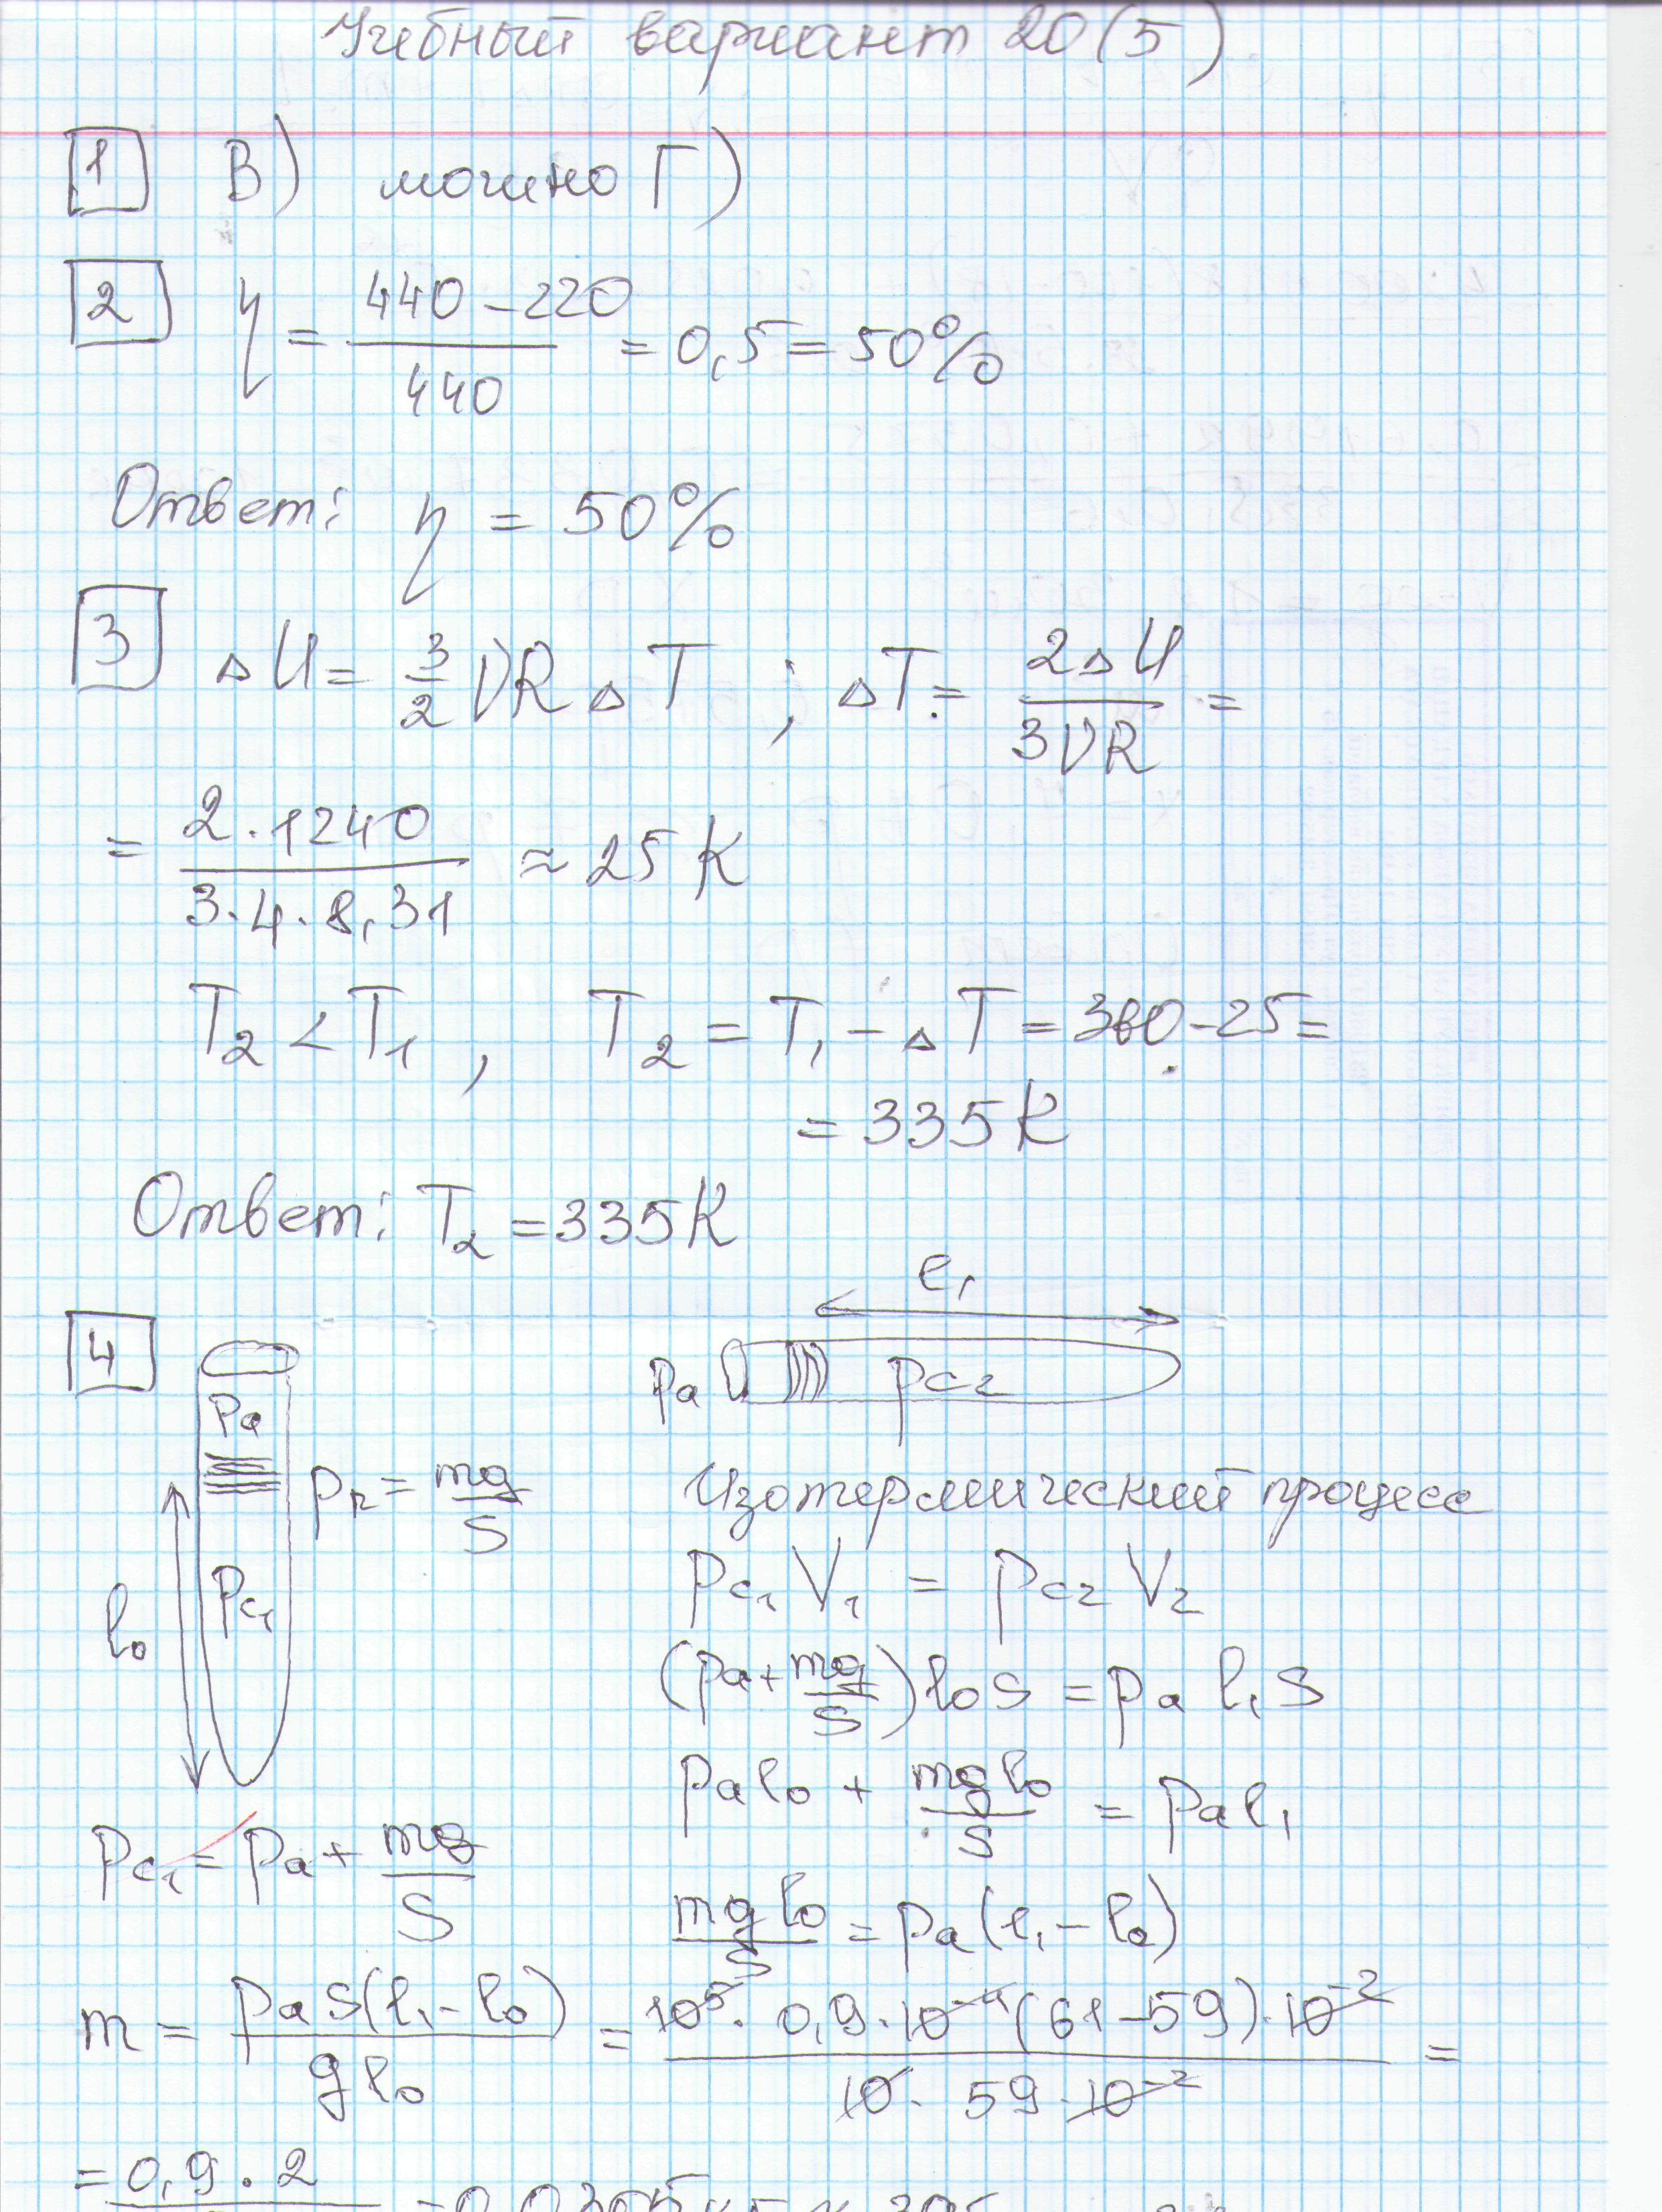 Учебный вариант 20(5)
1 В) можно Г)
2 η = (440 - 220)/440 = 0,5 = 50%
Ответ: η = 50%
3 ΔU = 3/2 νRΔT ; ΔT = 2ΔU/3νR =
= 2·1240/3·4·8,31 ≈ 25 K
T₂ < T₁ , T₂ = T₁ - ΔT = 360 - 25 =
= 335 K
Ответ: T₂ = 335 K
4
l₁
pa pc₂
pa
pп = mg/S
pc₁
l₀
Изотермический процесс
pc₁ V₁ = pc₂ V₂
(pa + mg/S) l₀ S = pa l₁ S
pa l₀ + mg l₀/S = pa l₁
pc₁ = pa + mg/S
mg l₀/S = pa (l₁ - l₀)
m = pa S(l₁ - l₀)/g l₀ = 10⁵ · 0,9 · 10⁻⁴ (61 - 59) · 10⁻²/10 · 59 · 10⁻² =
= 0,9 · 2